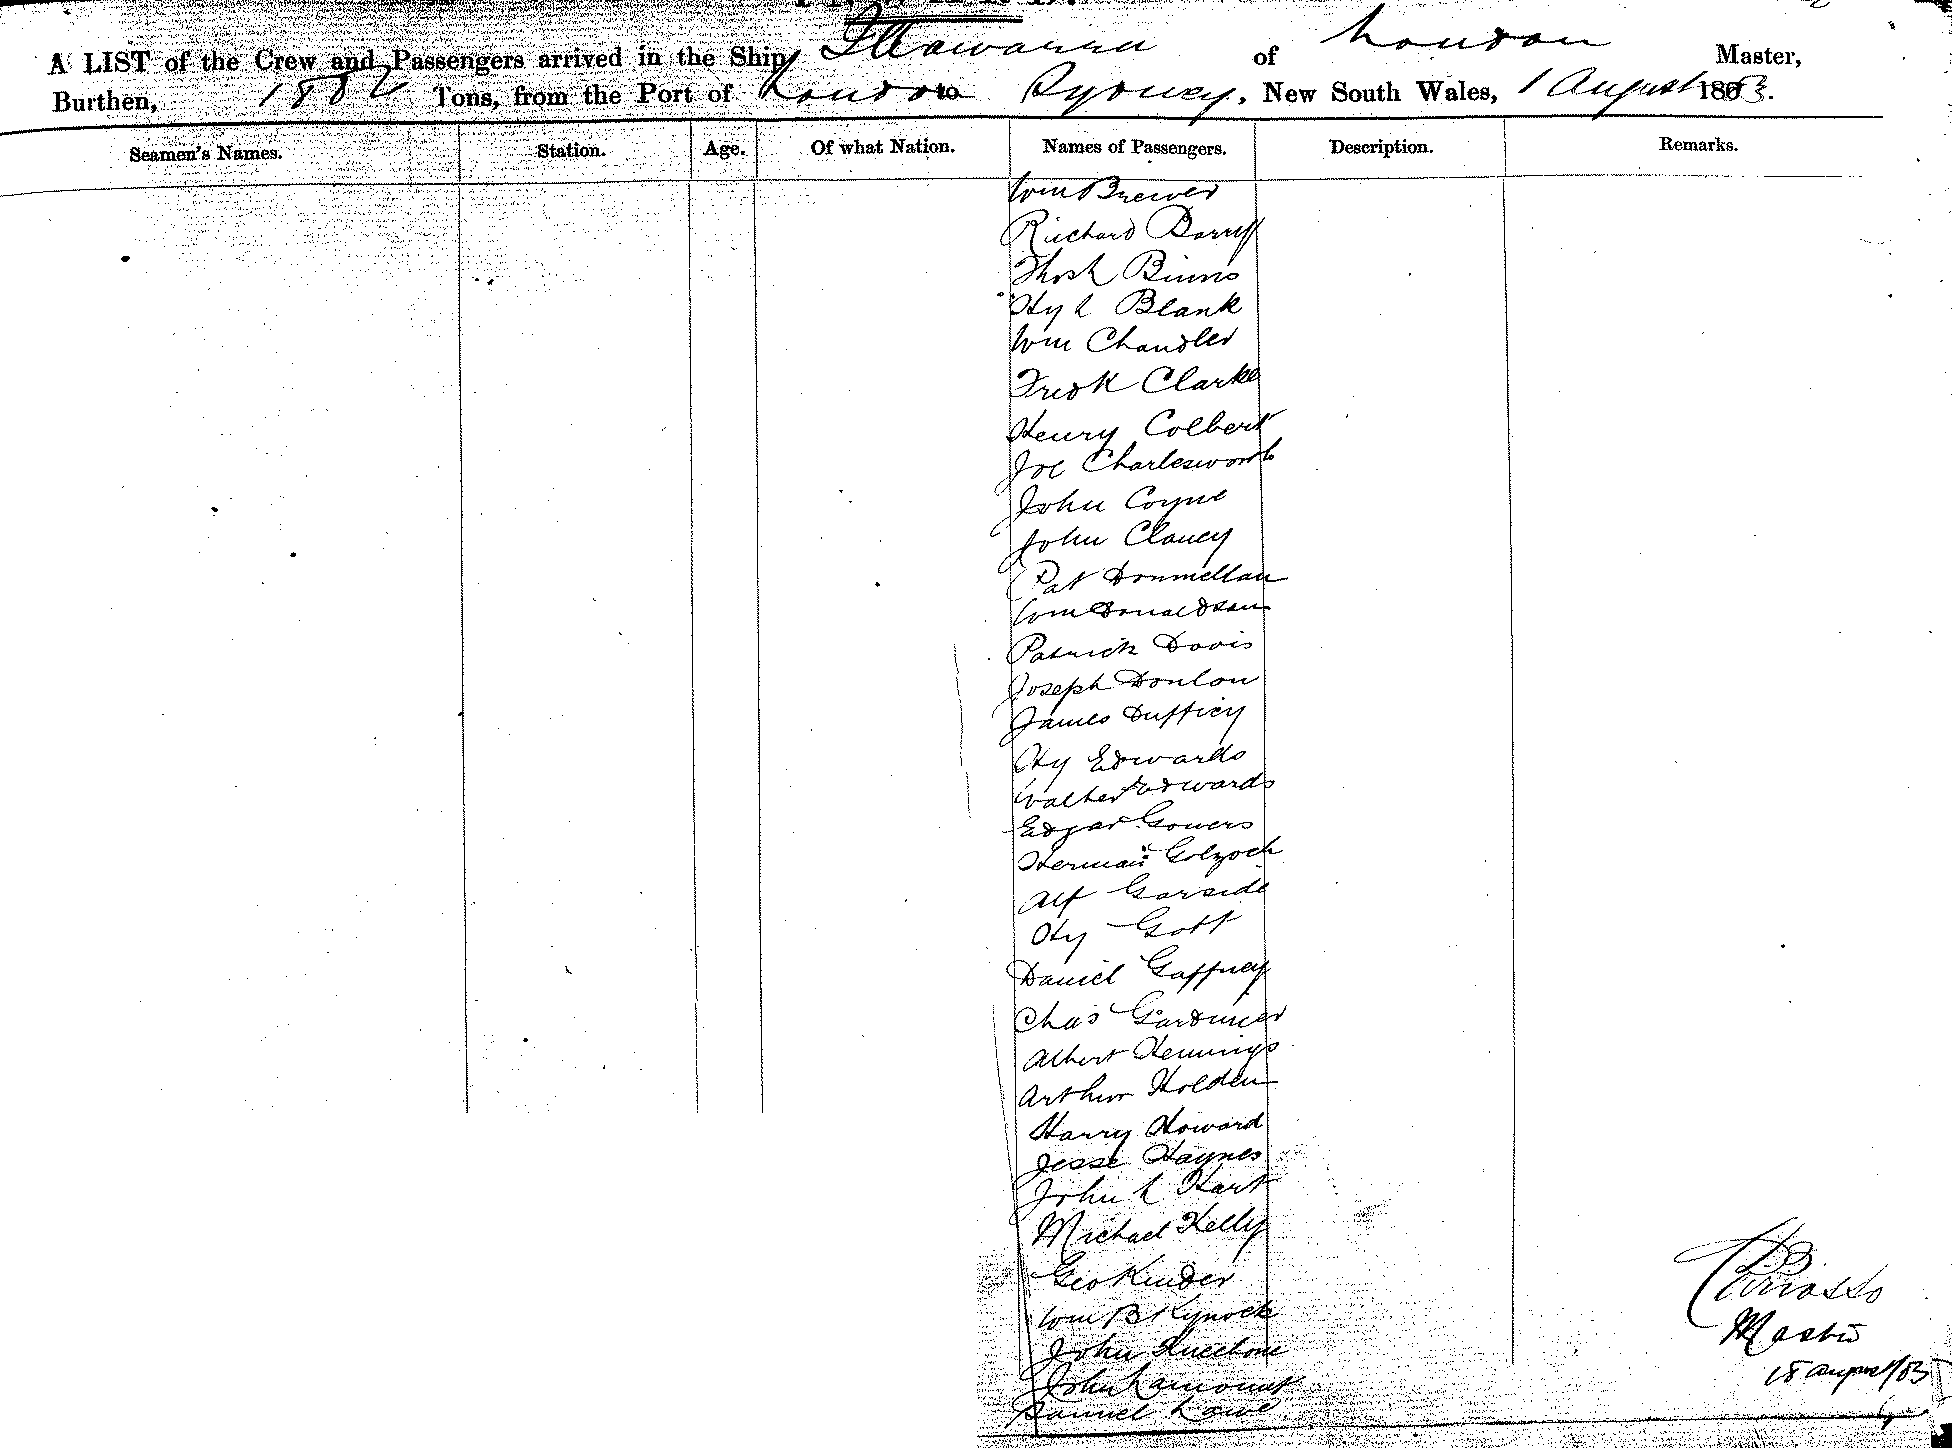 A LIST of the Crew and Passengers arrived in the Ship Illawarra of London Master,
Burthen, 1882 Tons, from the Port of London to Sydney, New South Wales, 1 August 1883.
Seamen's Names. Station. Age. Of what Nation. Names of Passengers. Description. Remarks.
Wm Brewer
Richard Barry
Binns
Hy L Blank
Wm Chandler
Fredk Clarke
Henry Colbert
Joe Charlesworth
John Coyne
John Clancy
Pat Donnellan
Wm Donaldson
Patrick Davis
Joseph Donlon
James Dufficy
Hy Edwards
Walter Edwards
Edgar Gowers
Herman
Alf Garside
Hy Gott
Daniel Gaffney
Chas Gardiner
Albert Hennings
Arthur Holden
Harry Howard
Jesse Haynes
John L Hart
Michael Kelly
Geo Kinder
Wm B Kynock
John
John Lamount
Samuel Lowe
Master
18 August/83